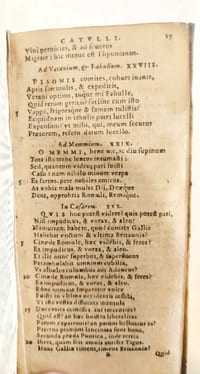 CATVLLI. 27
Vini pernicies, & ad seueros
Migrate: hic merus est Thyonianus.
Ad Veranium, & Fabullum. XXVIII.
PISONIS comites, cohors inanis,
Aptis sarcinulis, & expeditis,
Verani optime, tuque mi Fabulle,
Quid rerum geritis? satisne cum isto
5 Vappa, frigoraque & famem tulistis?
Ecquidnam in tabulis patet lucelli
Expensum? vt mihi, qui, meum secutus
Praetorem, refero datum lucello.
Ad Memmium. XXIX.
O MEMMI, bene me, ac diu supinum
Tota ista trabe lentus
Sed, quantum video, pari fuistis
Casu: nam nihilo minore verpa
5 Farti estis. pete nobiles amicos.
At vobis mala multa Dii, Deaeque
Dent, opprobria Romuli, Remique.
In Caesarem. XXX.
QVIS hoc potest videre? quis potest pati,
Nisi impudicus, & vorax, & aleo?
Mamurram habere, quod comata Gallia
Habebat & vltima Britannia?
5 Cinaede Romule, haec videbis, & feres?
Es impudicus, & vorax, & aleo.
Et ille nunc superbus, & superfluens
Perambulabit omnium cubilia,
Vt albulus columbus aut Adoneus?
10 Cinaede Romule, haec videbis, & feres?
Es impudicus, & vorax, & aleo.
Eone nomine imperator vnice
Fuisti in vltima occidentis insula,
Vt ista vestra diffututa mentula
15 Ducenties comesset, aut trecenties?
Quid est? an haec sinistra liberalitas
Parum expatrauit? an parum helluatus est?
Paterna primum
Secunda praeda Pontica: inde tertia
20 Ibera, quam scit amnis aurifer Tagus.
Hunc Galliae timent, timent Britanniae?
Quid